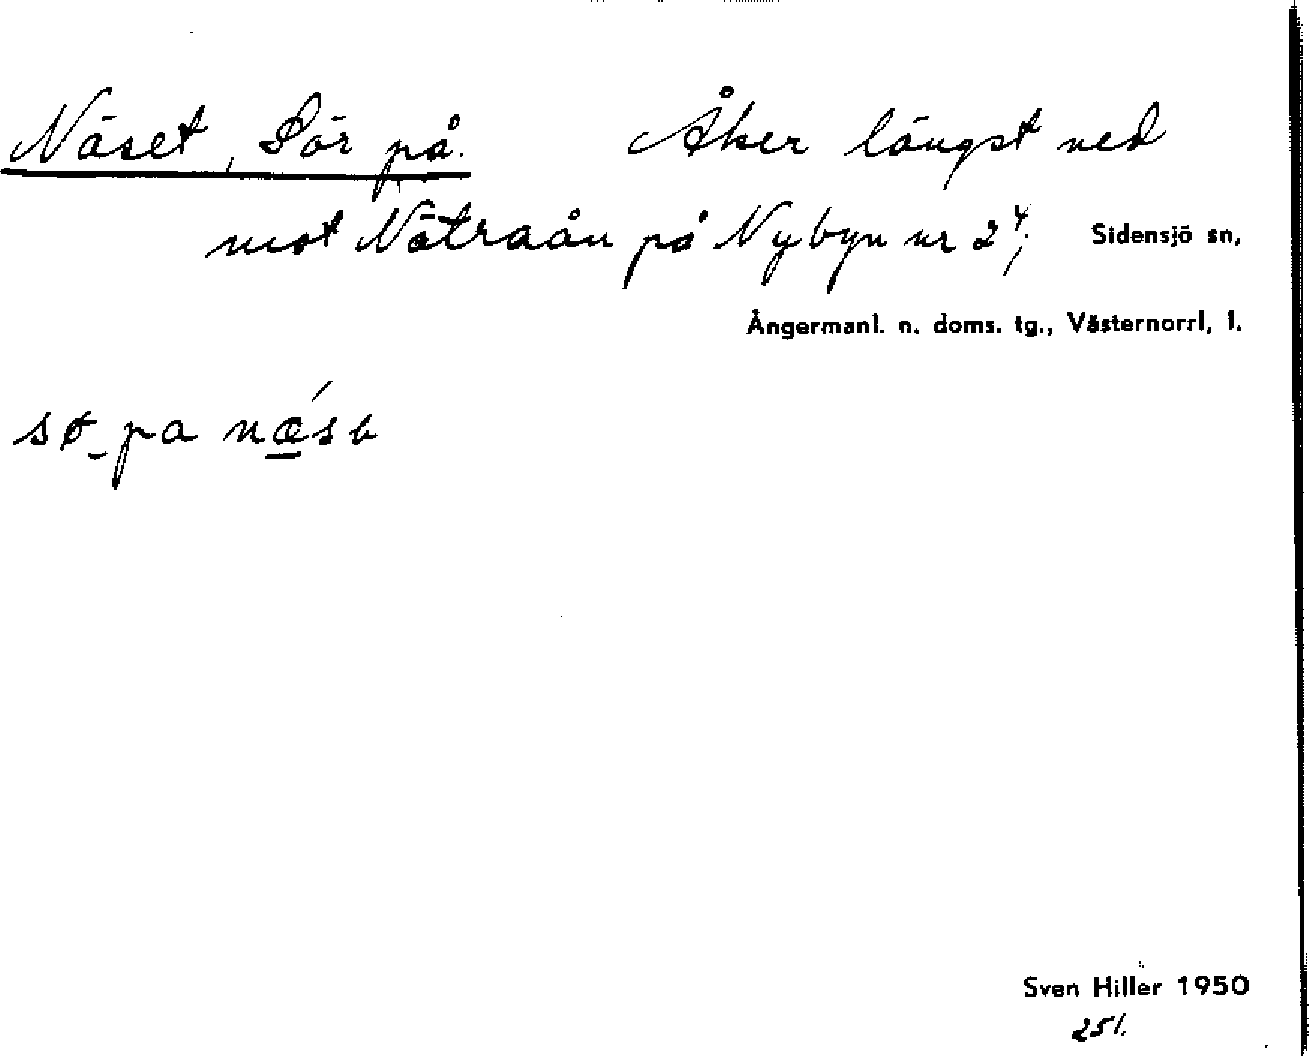 Näset, Sör på. Åker längst ned
mot Nätraån på Nybyn nr 2⁴; Sidensjö sn,
Ångermanl. n. doms. tg., Västernorrl, l.
sø_pa næ´sɐ
Sven Hiller 1950
251.